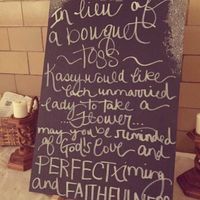 In lieu of
a bouquet
~ toss ~
Kasy would like
each unmarried
lady to take a
...flower...
may you be reminded
of God's love and
PERFECT timing
and FAITHFULNESS